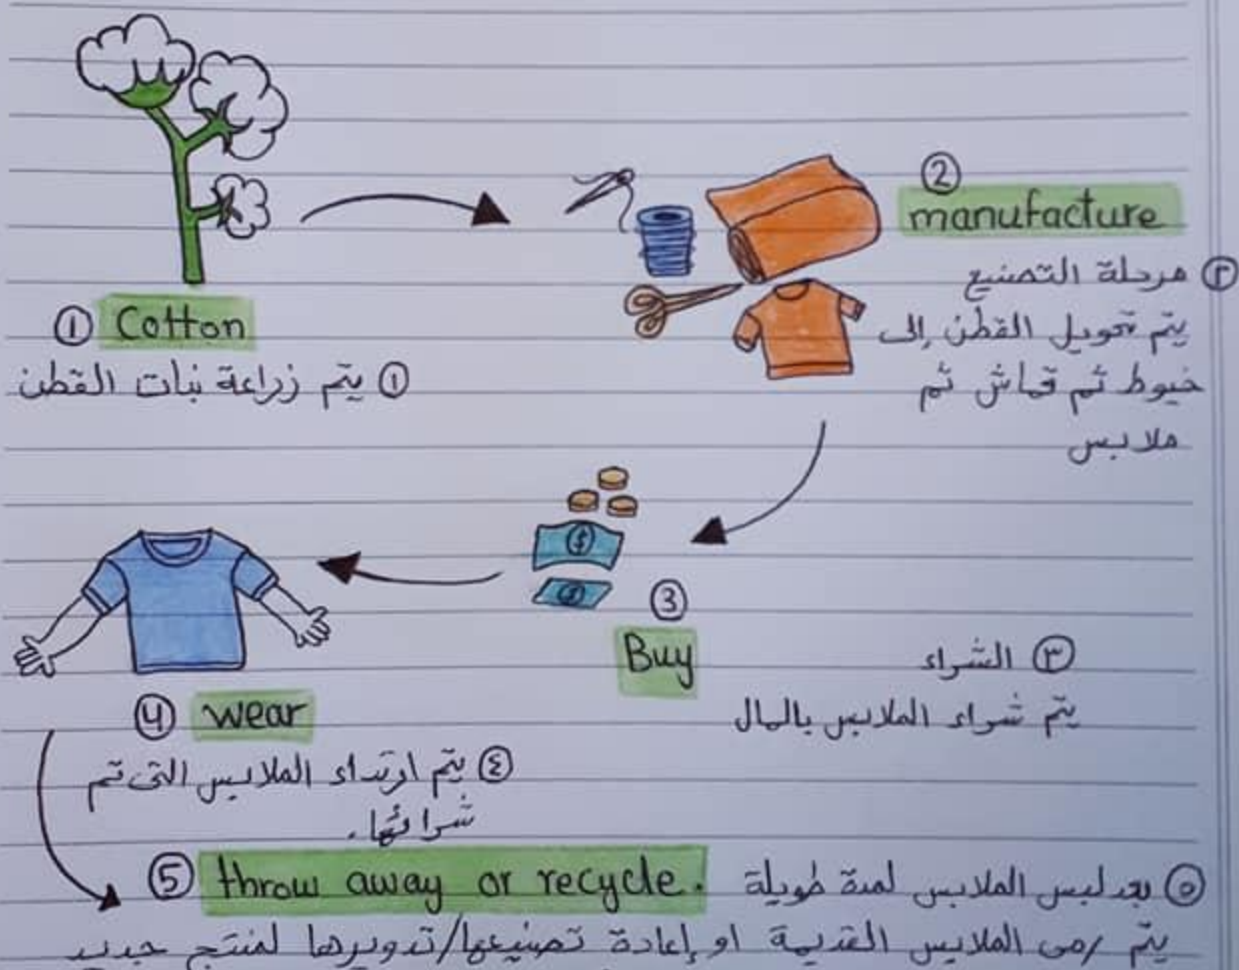 ① Cotton
① يتم زراعة نبات القطن
②
manufacture
٢ مرحلة التصنيع
يتم تحويل القطن إلى
خيوط ثم قماش ثم
ملابس
③
Buy
٣ الشراء
يتم شراء الملابس بالمال
④ wear
٤ يتم ارتداء الملابس التى تم
شرائها.
⑤ throw away or recycle. ٥ بعد لبس الملابس لمدة طويلة
يتم رمى الملابس القديمة او إعادة تصنيعها/تدويرها لمنتج جديد